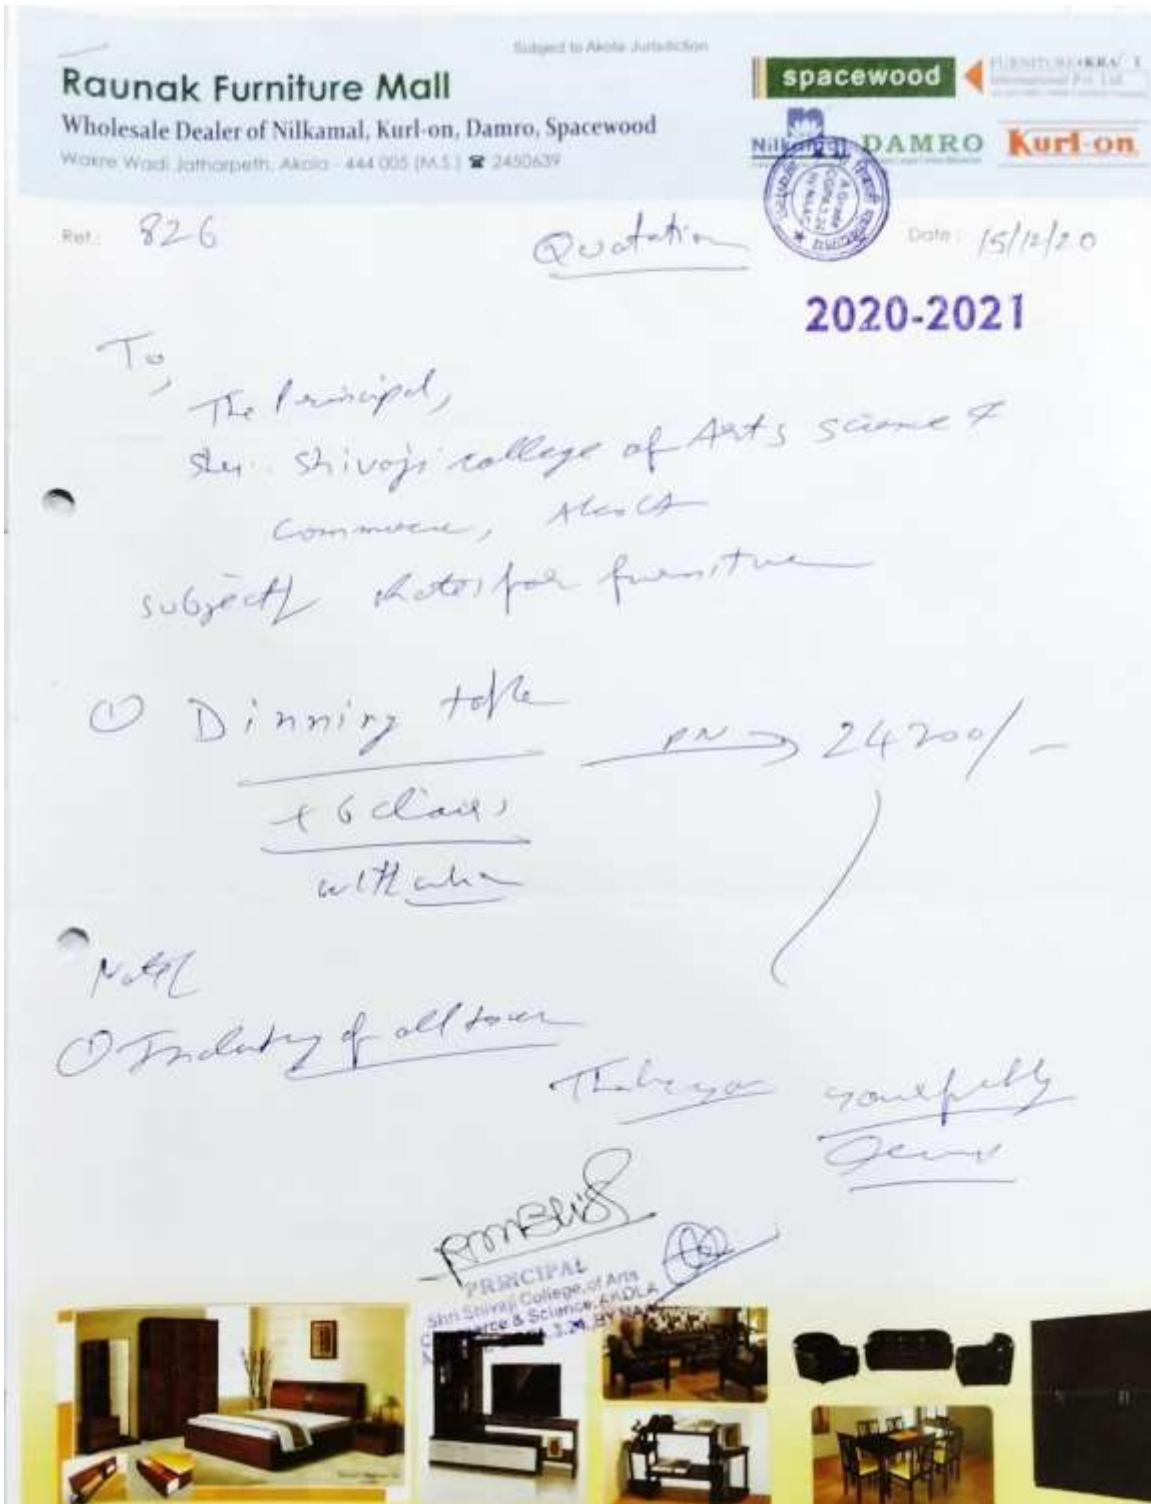 Subject to Akola Jurisdiction
Raunak Furniture Mall
Wholesale Dealer of Nilkamal, Kurl-on, Damro, Spacewood
Wakre Wadi Jatharpeth, Akola - 444 005 (M.S.) ☎ 2450639
spacewood
Nilkamal DAMRO Kurl-on
Ref.: 826
Quotation
Date: 15/12/20
2020-2021
To,
The Principal,
Shri Shivaji college of Arts Science &
Commerce, Akola
Subject/ Rates for furniture
① Dinning table
24200/-
+ 6 chairs
with
Note/
① of all taxes
Thank you
PRINCIPAL
Shri Shivaji College of Arts
Commerce & Science, AKOLA